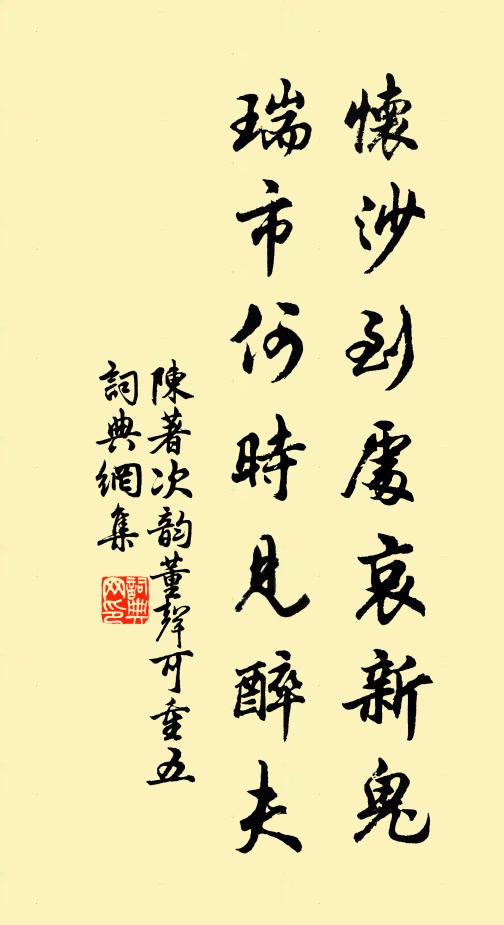 懷沙到處哀新鬼
瑞市何時見醉夫
陳著次韵董聲可重五
詞典網集
詞典網印